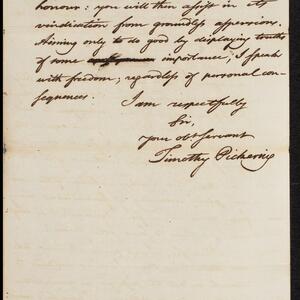 honour: you will then assist in its
vindication from groundless aspersions.
Aiming only to do good by displaying truths
of some importance, I speak
with freedom; regardless of personal con-
sequences.
I am respectfully
Sir,
your obt servant
Timothy Pickering